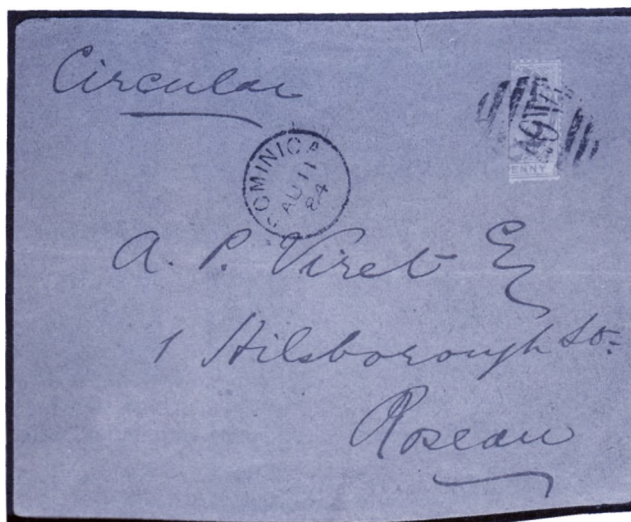 Circular
DOMINICA
AU 11
84
A07
ENNY
A. P. Viret Eq
1 Hilsborough St.
Roseau